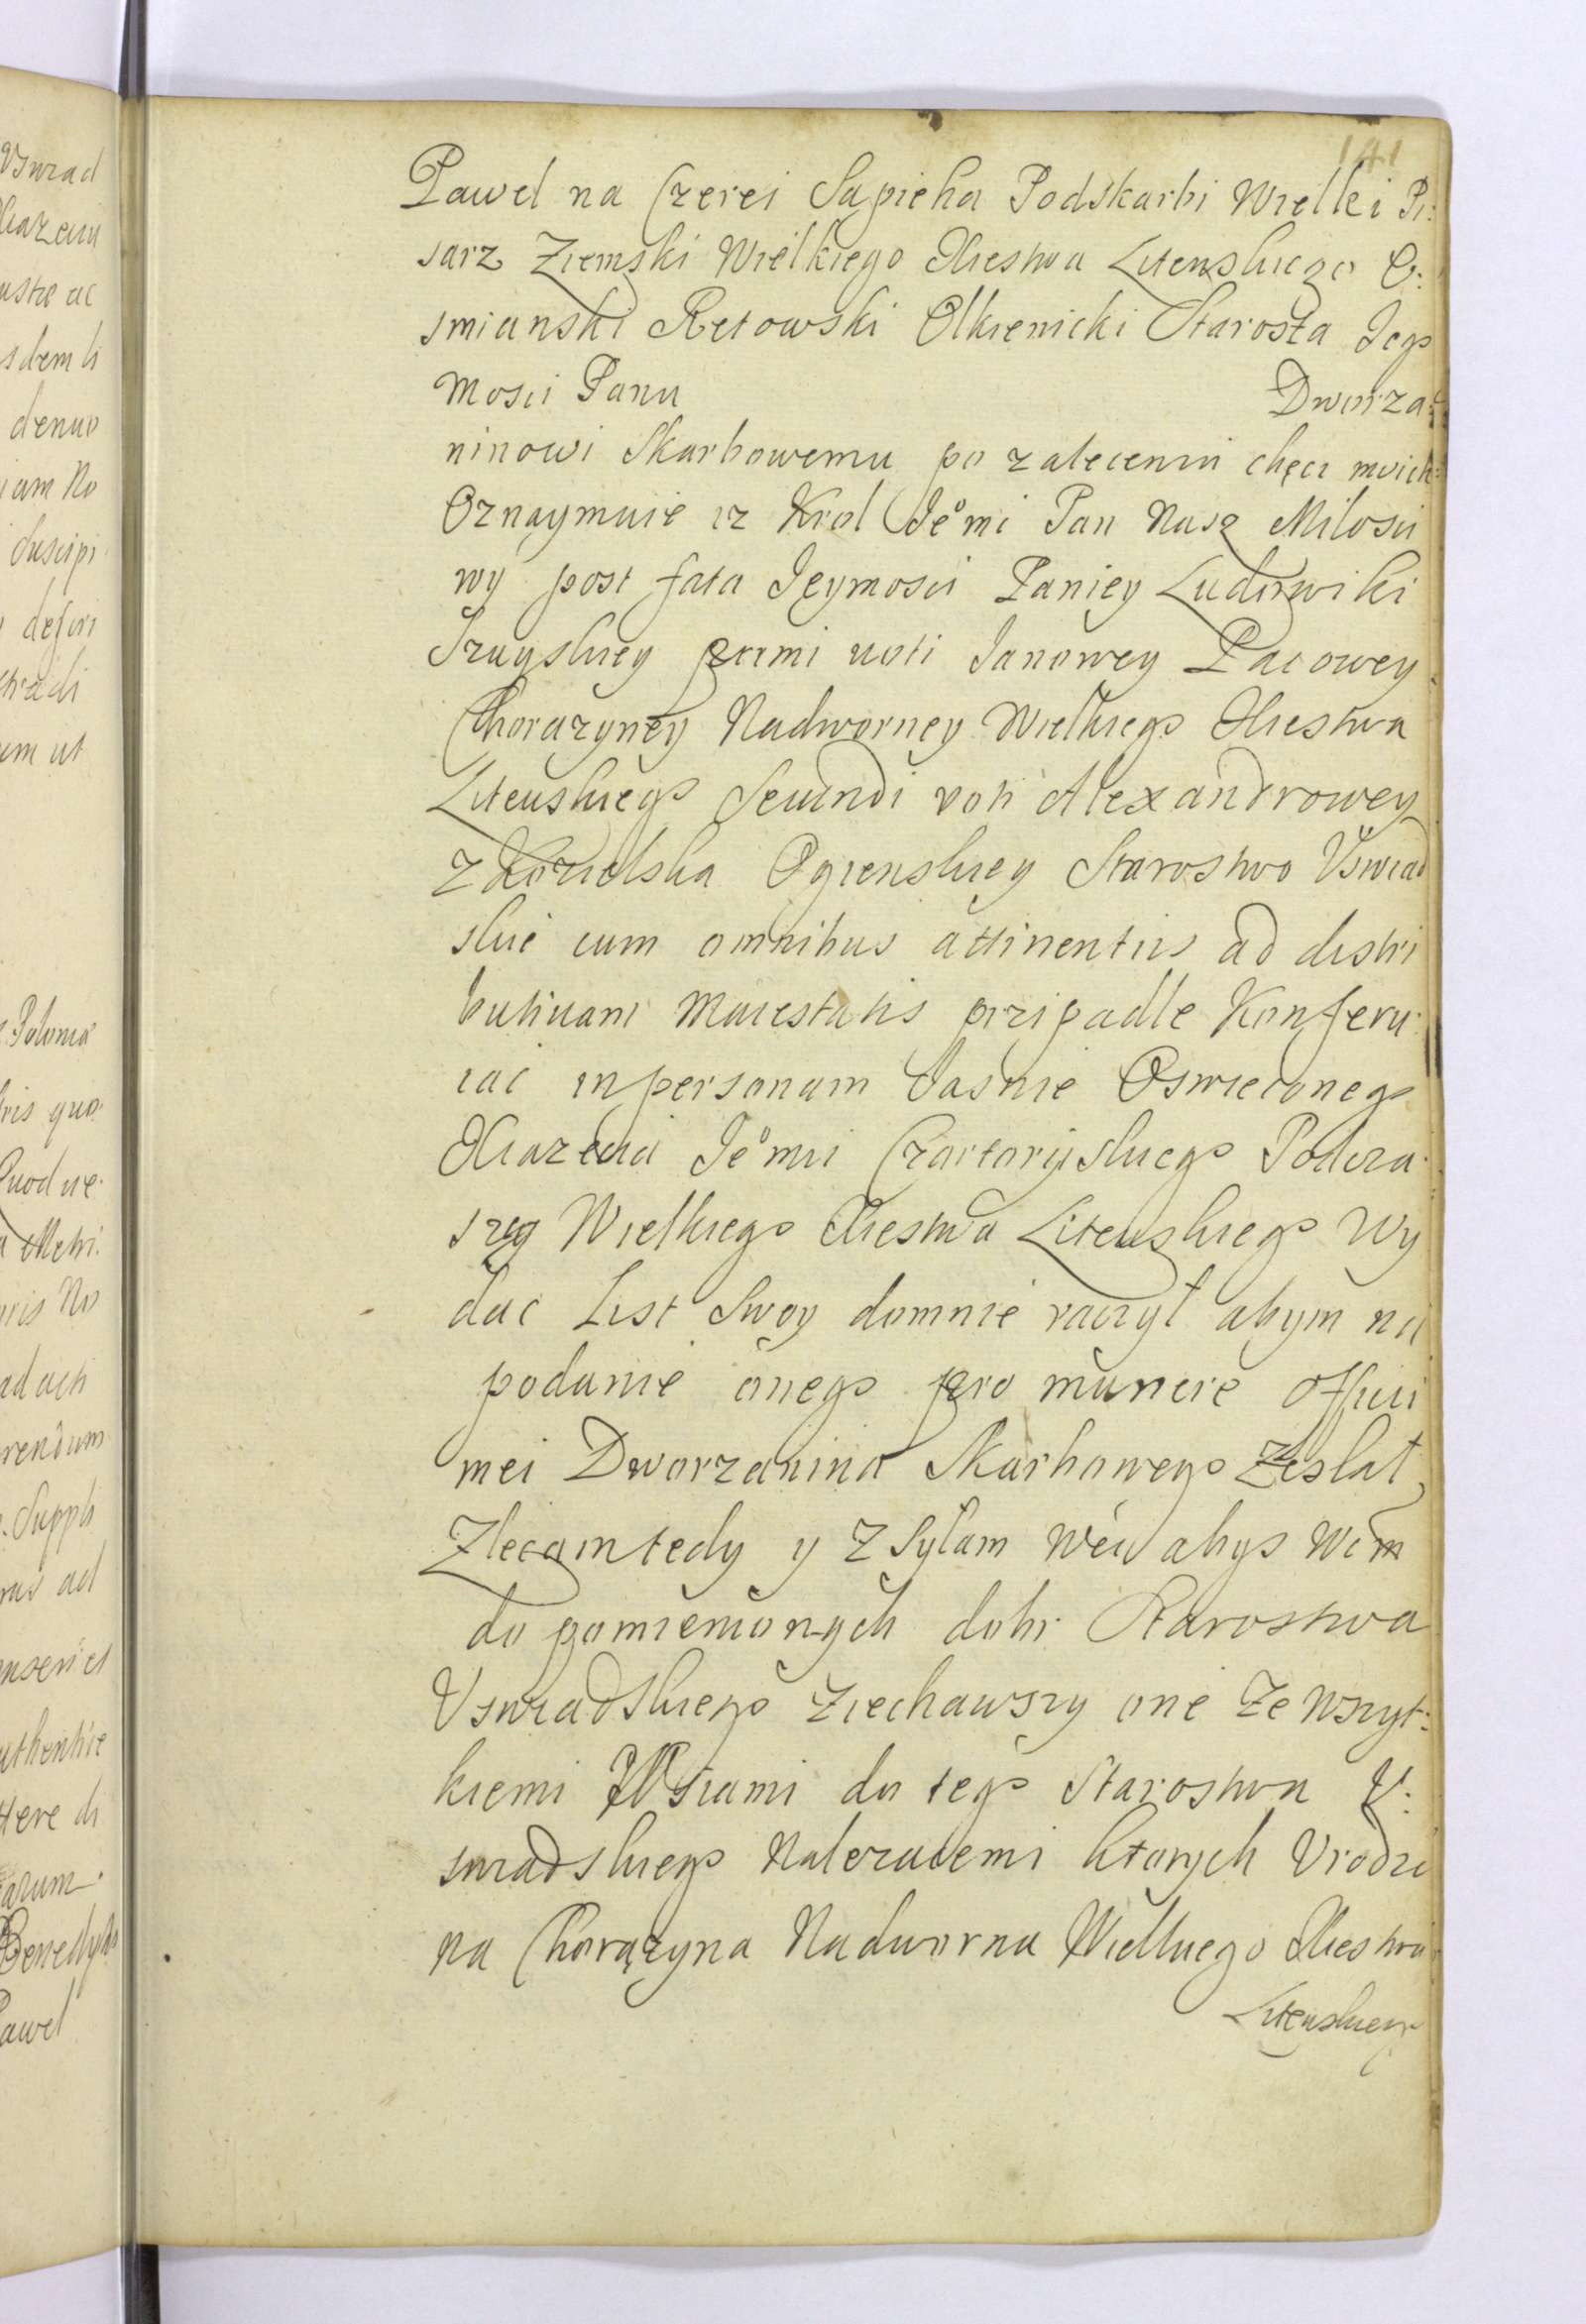 141
Pawel na Czerei Sapieha Podskarbi Wielki Pi:
sarz Ziemski Wielkiego Xiestwa Litewskiego O:
smianski Retowski Olkienicki Starosta Jego
Mosci Panu Dworza:
ninowi Skarbowemu po zaleceniu chęci moich
Oznaymuie iz Krol Jeo mi Pan Nasz Milosci
wy post fata Jeymosci Paniey Ludowiki
Isayskiey primi voti Janowey Pacowey
Chorazyney Nadworney Wielkiego Xiestwa
Litewskiego Secundi voti Alexandrowey
z Kozielska Oginskiey Starostwo Vswiad
skie cum omnibus attinentiis ad distri
butivam Maiestatis przipadle Konferu:
iac in personam Jasnie Oswieconego
Xiazecia Jeo mci Czartoryskiego Podcza:
szeg Wielkiego Xiestwa Litewskiego Wy
dac List Swoy domnie raczyl abym na
podanie onego pro munere officii
mei Dworzanina Skarbowego Zeslal
Zlecam tedy y Zsylam Wci abys Wcm
do pomienionych dobr Starostwa
Vswiadskiego Ziechawszy one Ze Wszyt:
kiemi Wsiami do tego Starostwa V:
swiadskiego Nalezacemi ktorych Vrodzo
na Chorązyna Nadworna Wielkiego Xiestwa
Litewskiego
Vswiad
ustre ac
denuo
iam No
suscipi
um ut
Polonia
quo
Quod ve
Metri
ris No
ad acti
rendum
Suppli
ras ad
uthentice
tere di
arum
Benedykt
Pawel